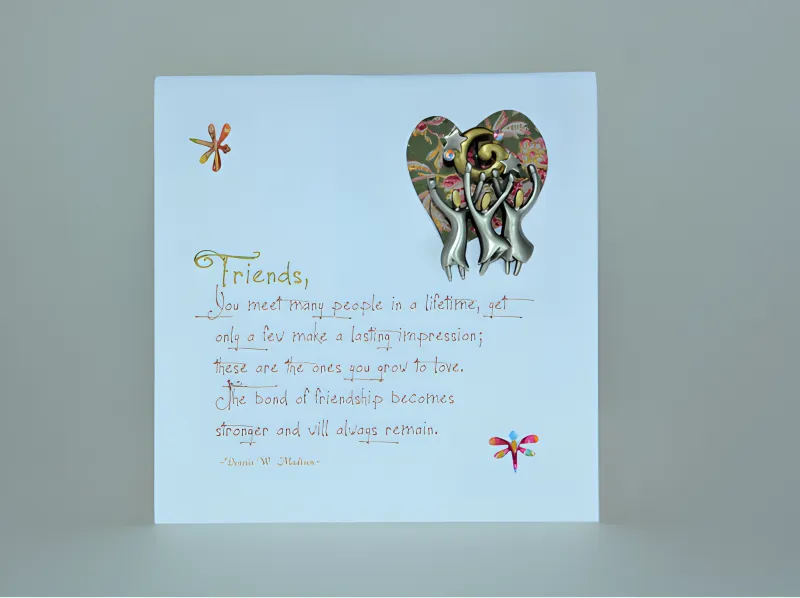 Friends,
You meet many people in a lifetime, yet
only a few make a lasting impression;
these are the ones you grow to love.
The bond of friendship becomes
stronger and will always remain.
W.